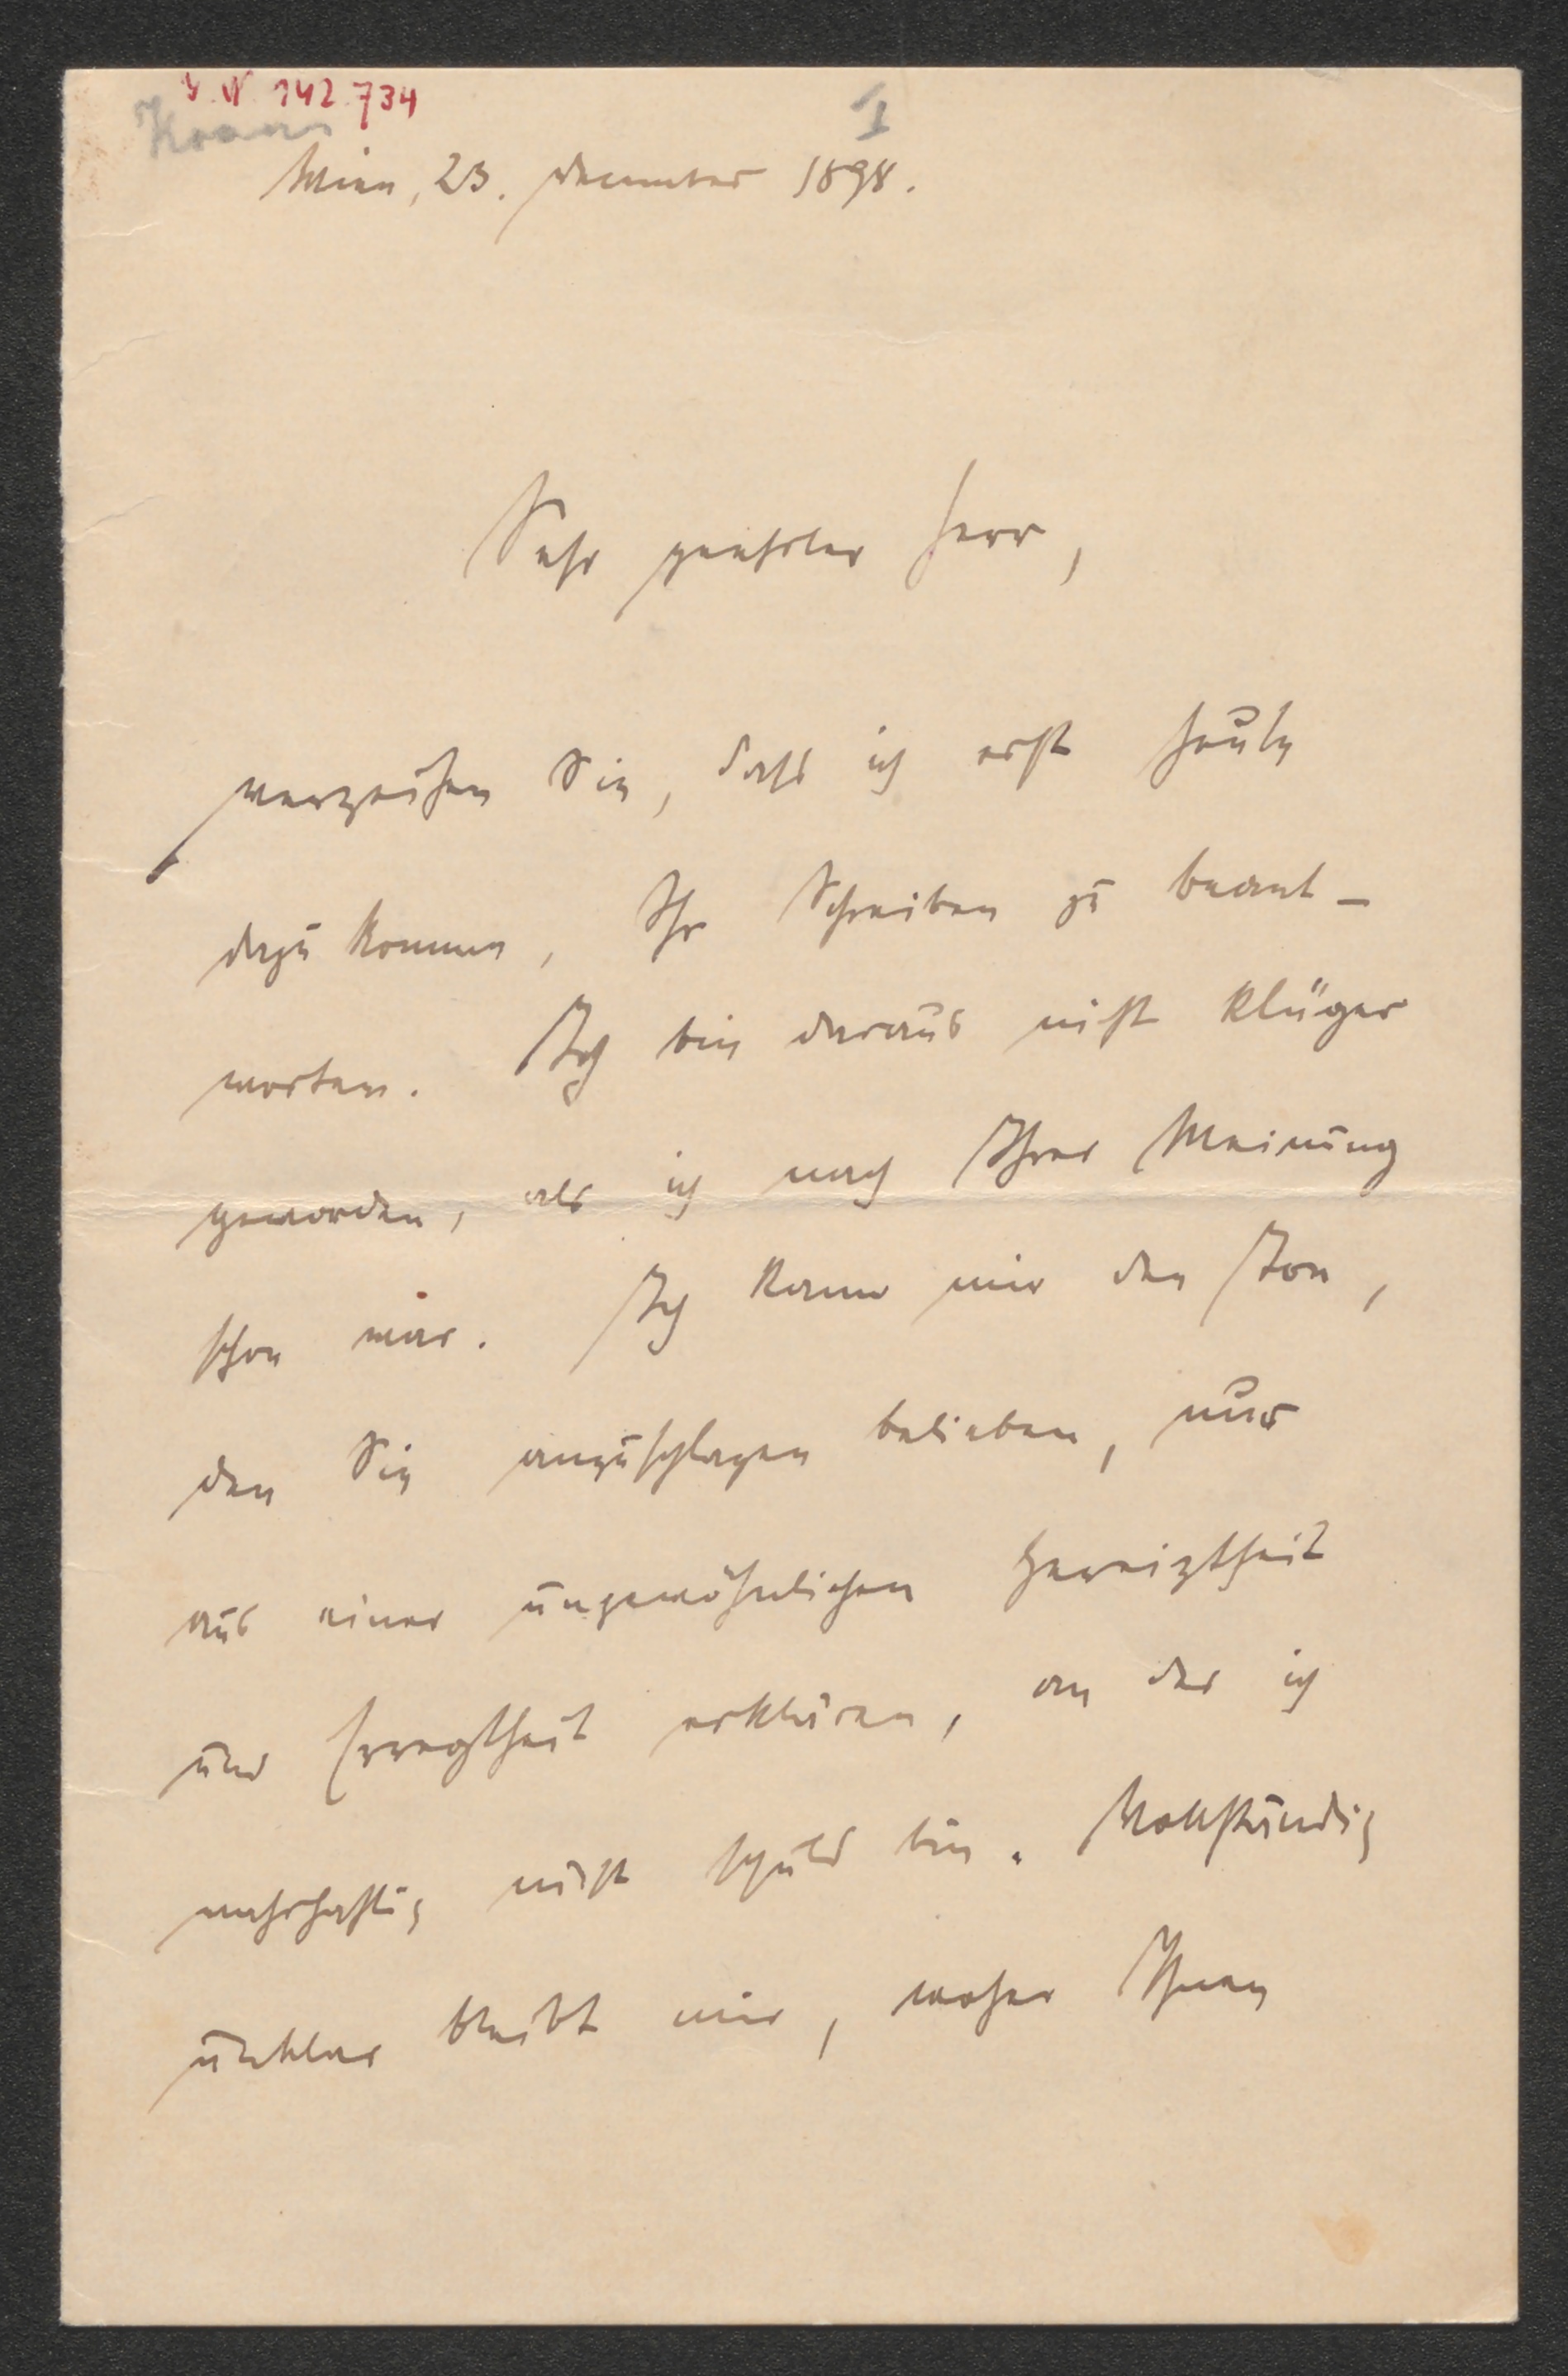 I. N. 142.734
Kraus
I
Wien, 23. December 1898.
Sehr geehrter Herr,
verzeihen Sie, dass ich erst heute
dazu komme, Ihr Schreiben zu beant-
worten. Ich bin daraus nicht klüger
geworden, als ich nach Ihrer Meinung
schon war. Ich kann mir den Ton,
den Sie anzuschlagen belieben, nur
aus einer ungewöhnlichen Gereiztheit
und Erregtheit erklären, an der ich
wahrhaftig nicht schuld bin. Vollständig
unklar bleibt mir, woher Ihnen